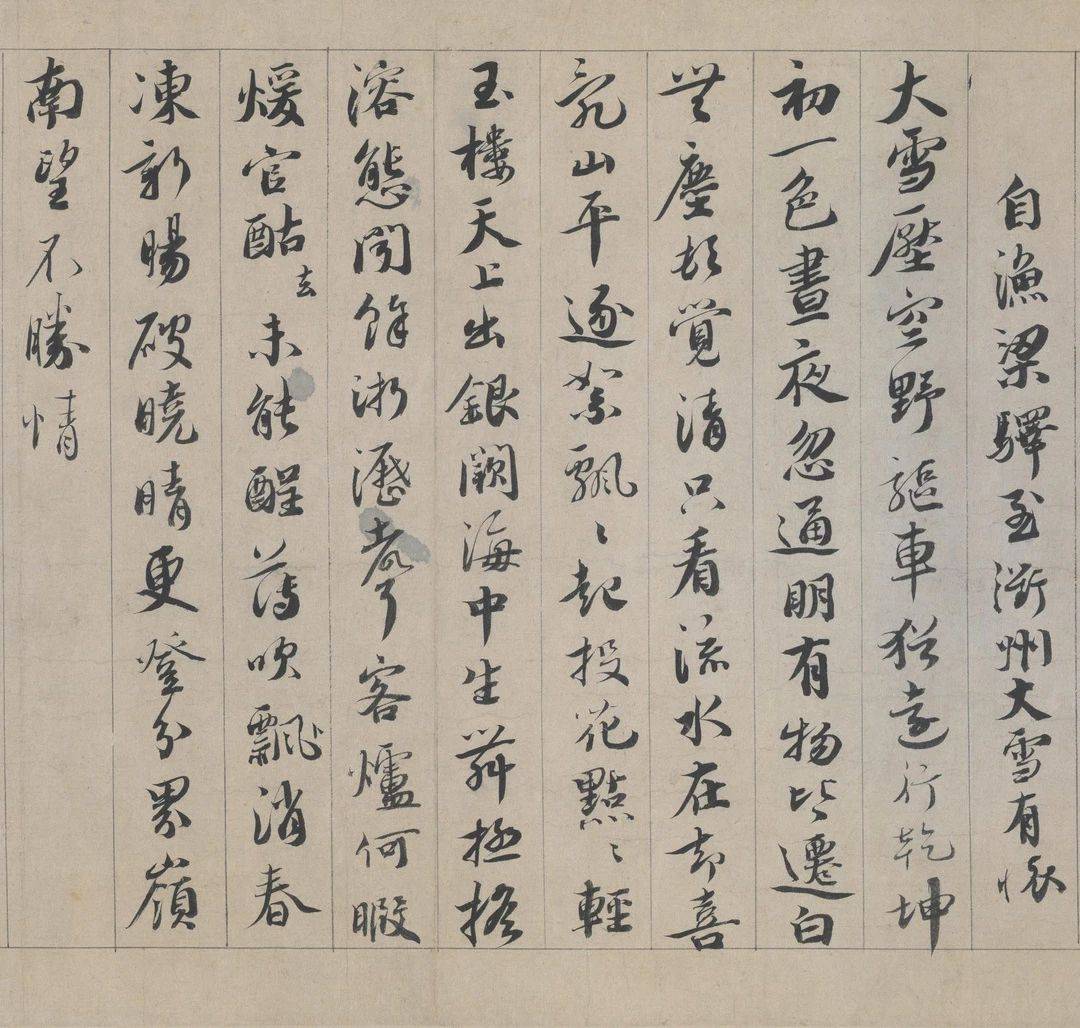 自漁梁驛至衢州大雪有懷
大雪壓空野驅車猶遠行乾坤
初一色晝夜忽通明有物皆遷白
無塵頓覺清只看流水在却喜
亂山平逐絮飄〻起投花點〻輕
玉樓天上出銀闕海中生舞極搖
溶態聞餘淅瀝聲客爐何暇
煖官酤去未能醒薄吹飄消春
凍新暘破曉晴更登分界嶺
南望不勝情